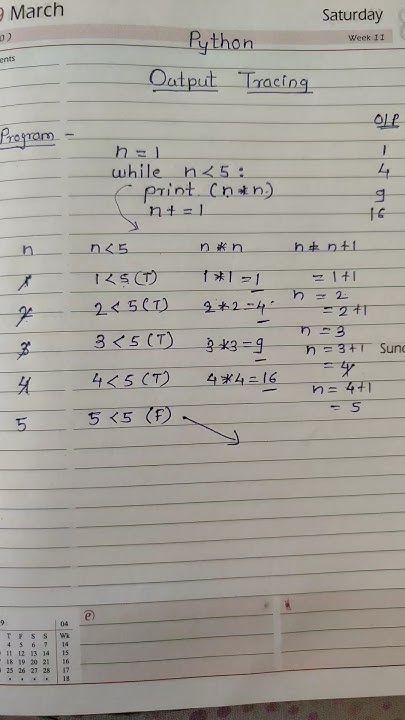 9 March Saturday
0) Week 11
ents
Python
Output Tracing
Program - O/P
n = 1 1
while n < 5 : 4
print (n*n) 9
n + = 1 16
n n<5 n * n n * n+1
1 1<5 (T) 1*1 = 1 = 1+1
n = 2
2 2<5 (T) 2*2 = 4 = 2+1
n = 3
3 3<5 (T) 3*3 = 9 n = 3+1 Sund
= 4
4 4<5 (T) 4*4 = 16 n = 4+1
= 5
5 5<5 (F)
9 04
T F S S Wk
4 5 6 7 14
11 12 13 14 15
18 19 20 21 16
25 26 27 28 17
• • • • 18